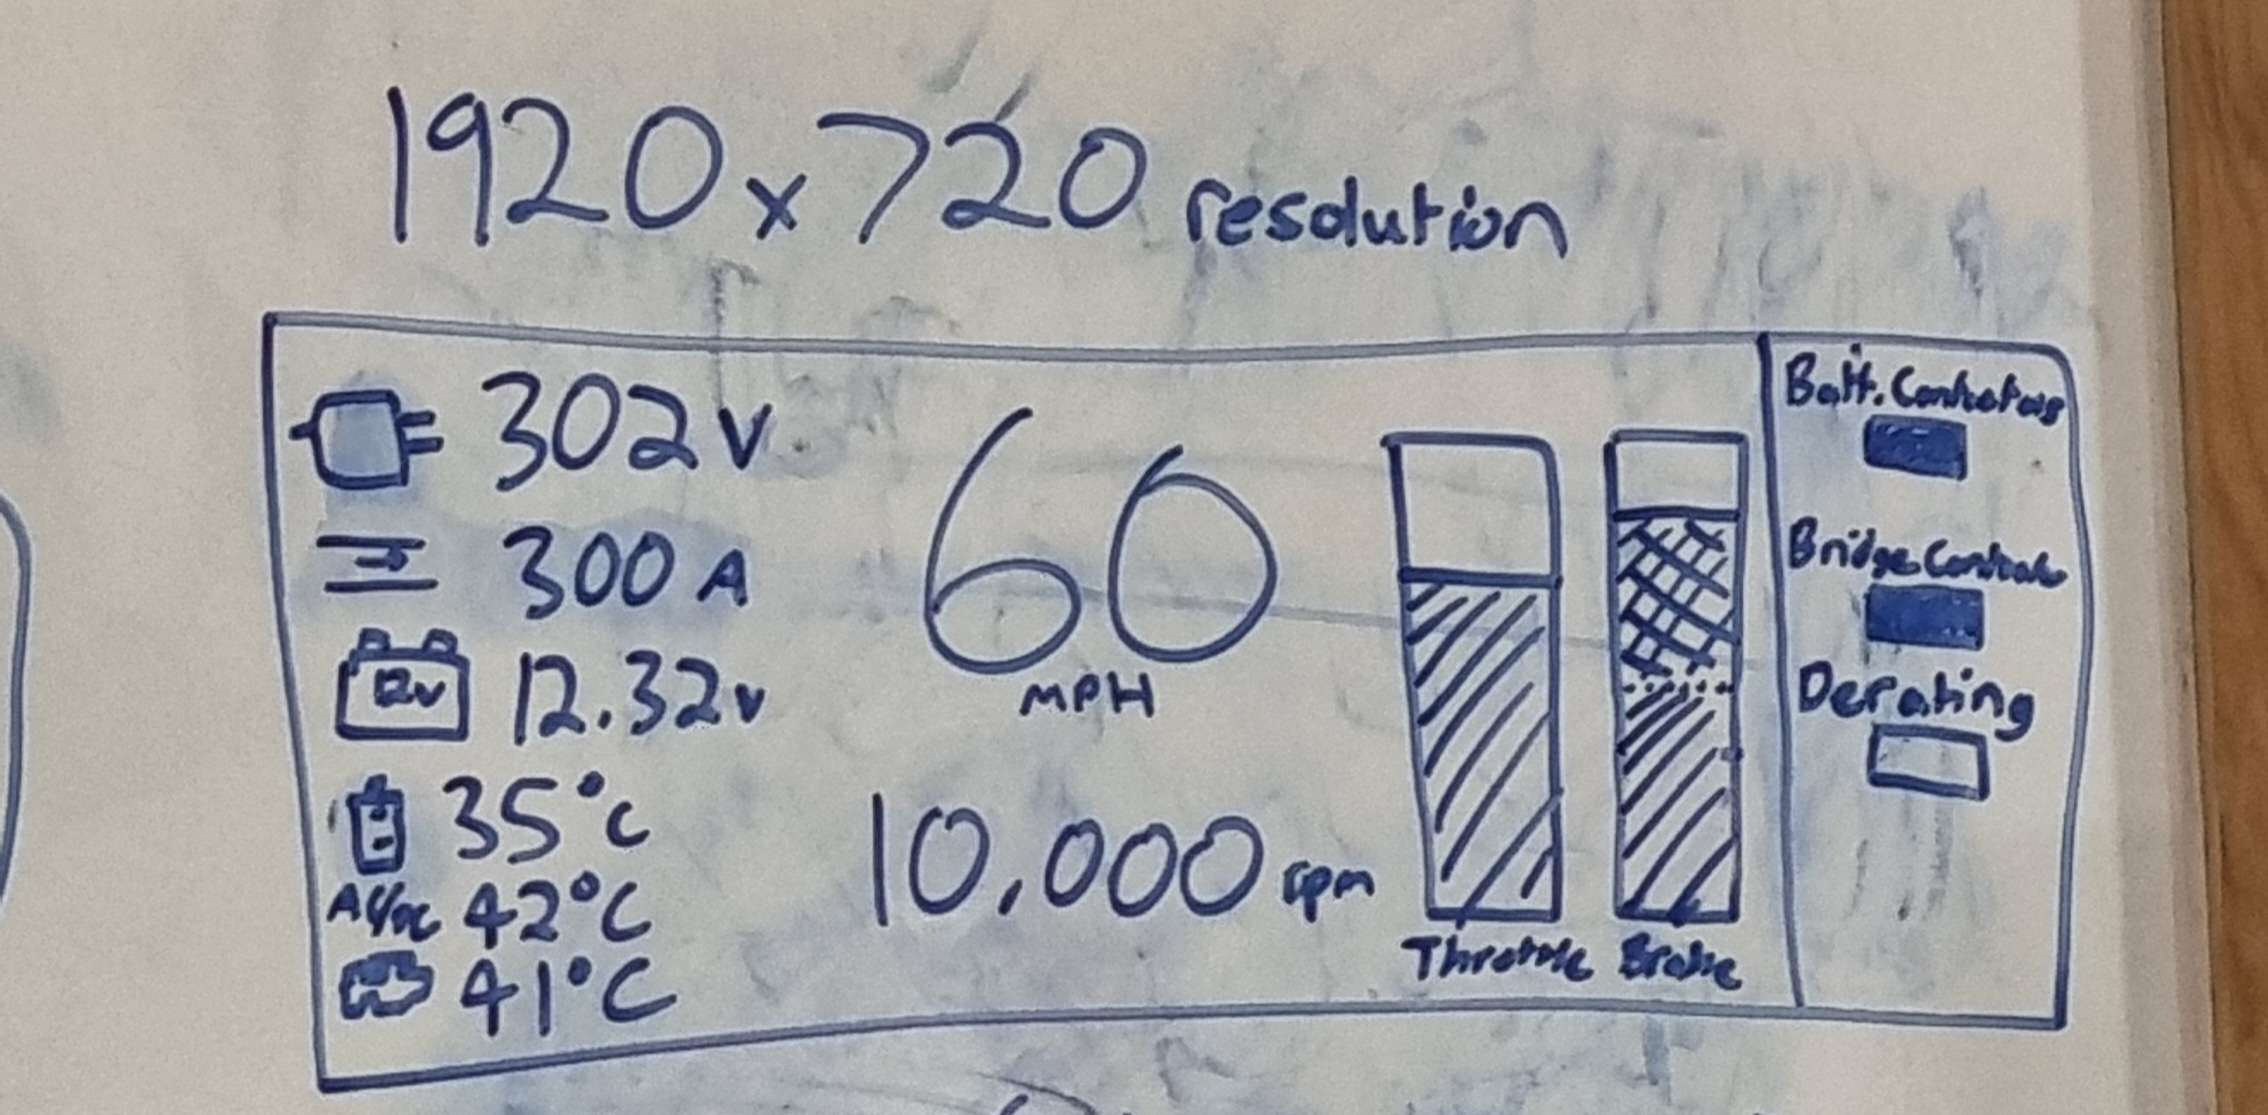 1920 x 720 resolution
302 V
300 A
12V 12.32v
35°C
AC/DC 42°C
41°C
60
MPH
10,000 rpm
Throttle Brake
Batt. Contactors
Bridge
Derating